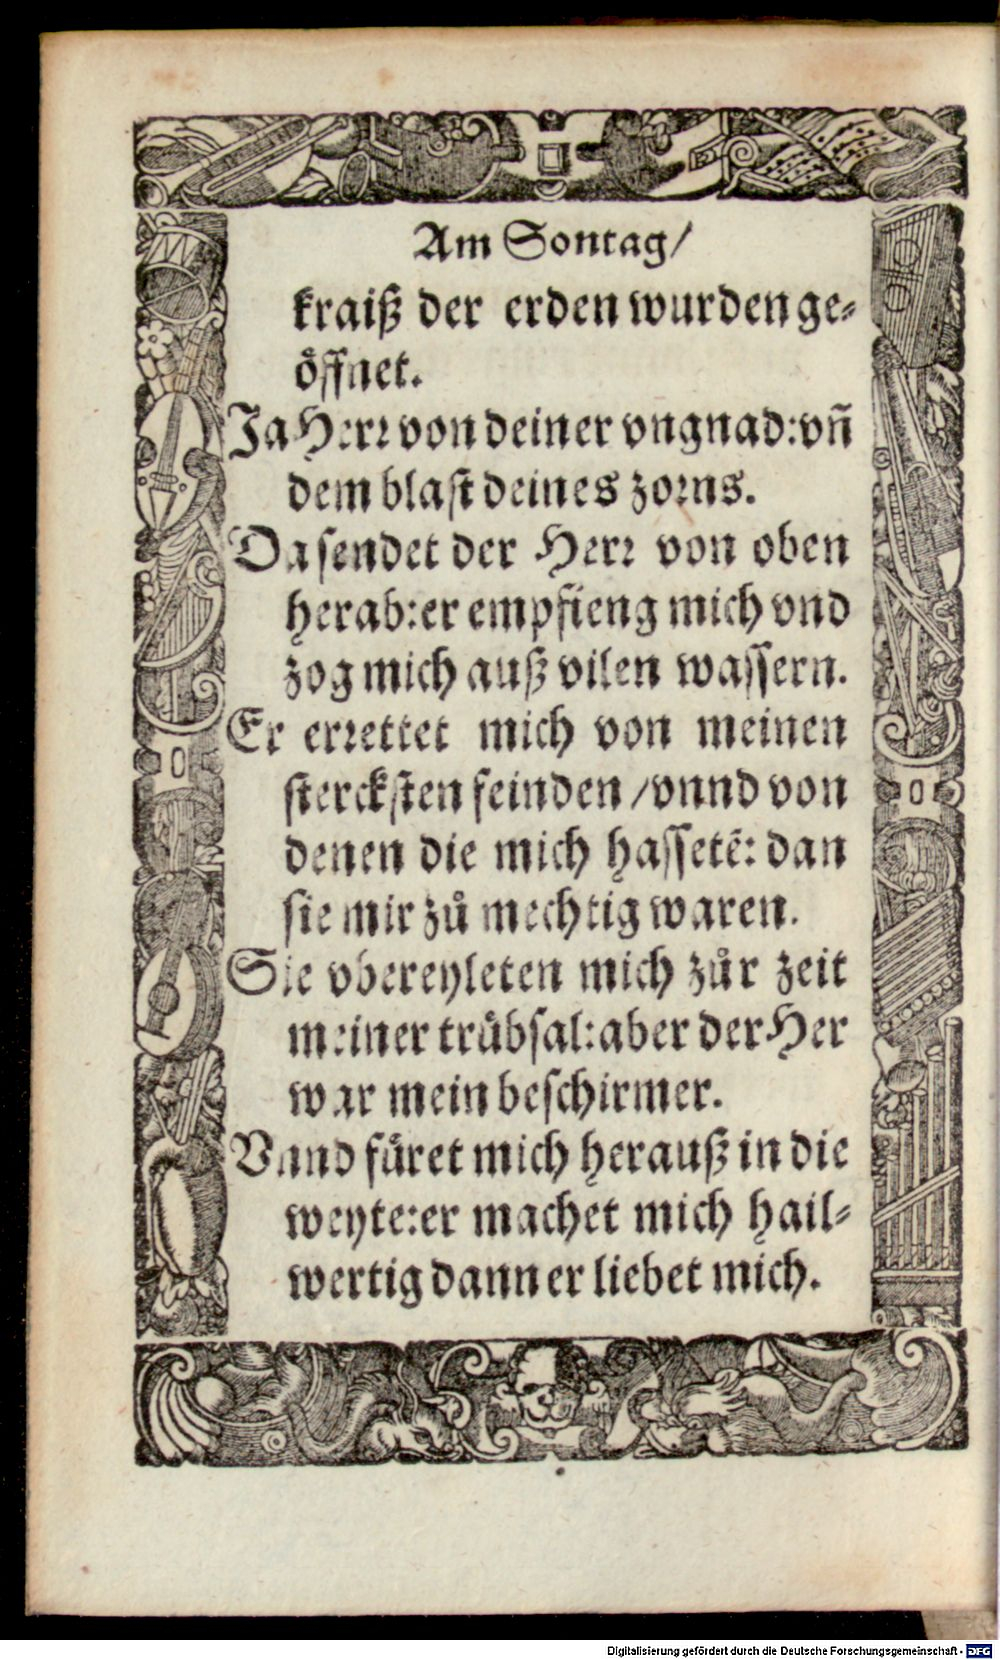 Am Sontag/
kraiß der erden wurden ge-
öffnet.
Ja Herr von deiner vngnad: vñ
dem blast deines zorns.
Da sendet der Herr von oben
herab: er empfieng mich vnd
zog mich auß vilen wassern.
Er errettet mich von meinen
stercksten feinden / vnnd von
denen die mich hassetẽ: dan
sie mir zů mechtig waren.
Sie vbereyleten mich zůr zeit
meiner trůbsal: aber der Her
war mein beschirmer.
Vnnd fůret mich herauß in die
weyte: er machet mich hail-
wertig dann er liebet mich.
Digitalisierung gefördert durch die Deutsche Forschungsgemeinschaft - DFG